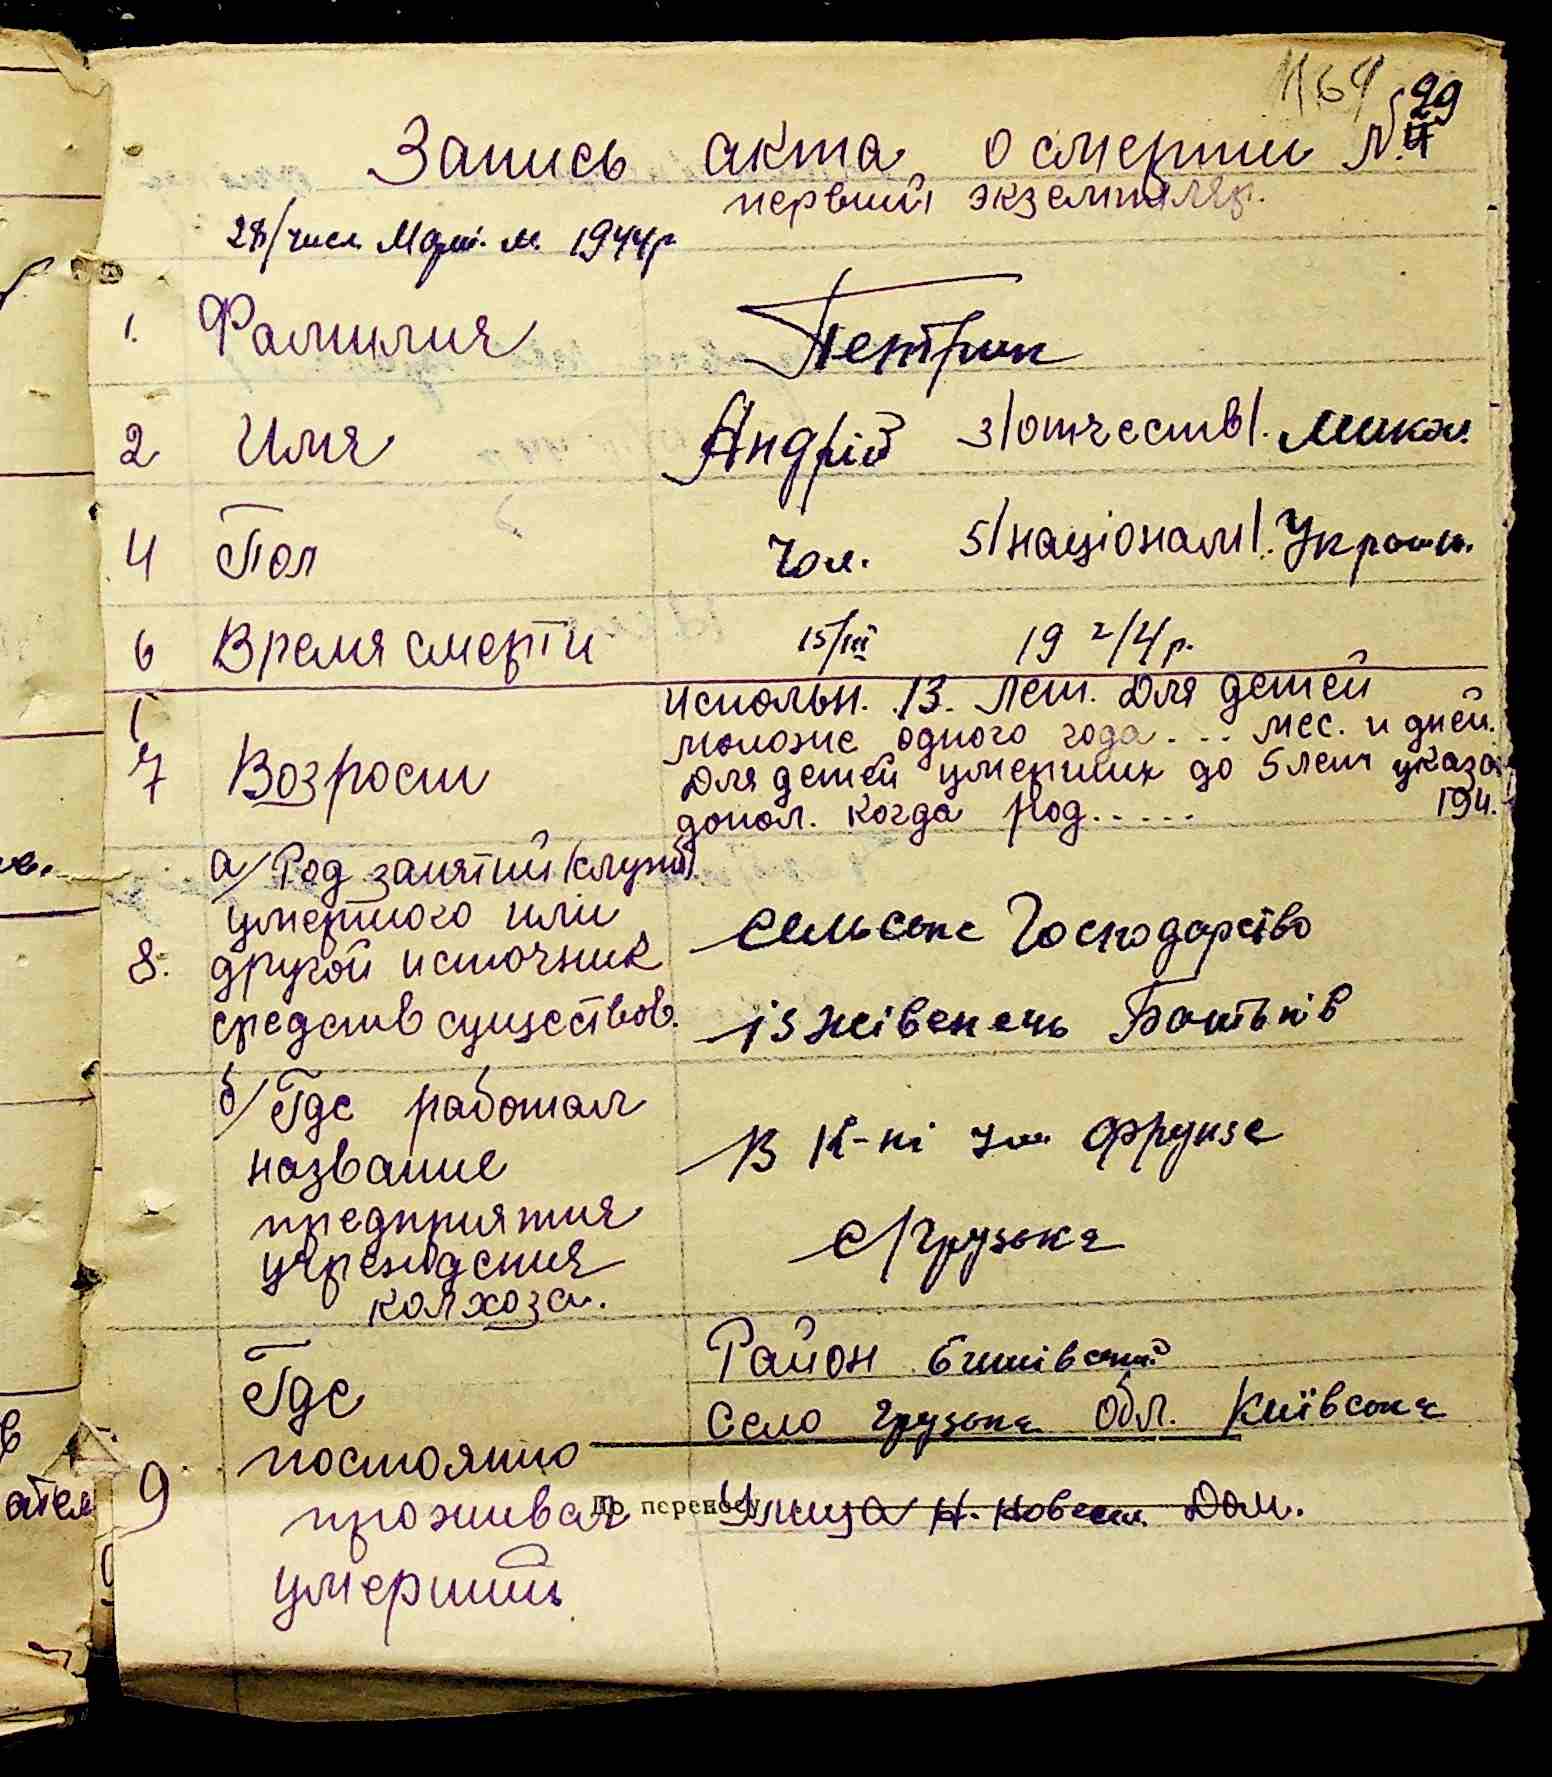 1164 29
Запись акта о смерти №
первый экземпляр.
28/числ. Мар. м. 1944р
1. Фамилия Петрик
2 Имя Андрій 3/отчеств/. Микол.
4 Пол Чол. 5/націонал/. Украин.
6 Время смерти 15/III 1944р.
Исполн. 13. Лет. Для детей
моложе одного года... мес. и дней.
7 Возрост Для детей умерших до 5 лет указа
допол. когда род..... 194.
а/ Род занятий (служб)
умершого или
8. другой источник Сельське Господарство
средств существов. ізжівенець Батьків
б/ Где работал
название В К-пі ім Фрунзе
предприятия
учреждения с/Грузьке
колхоза.
Район Бишівський
Где Село Грузьке Обл. Київська
9 постоянно
проживал По переносу Улица Дом.
умерший
ател